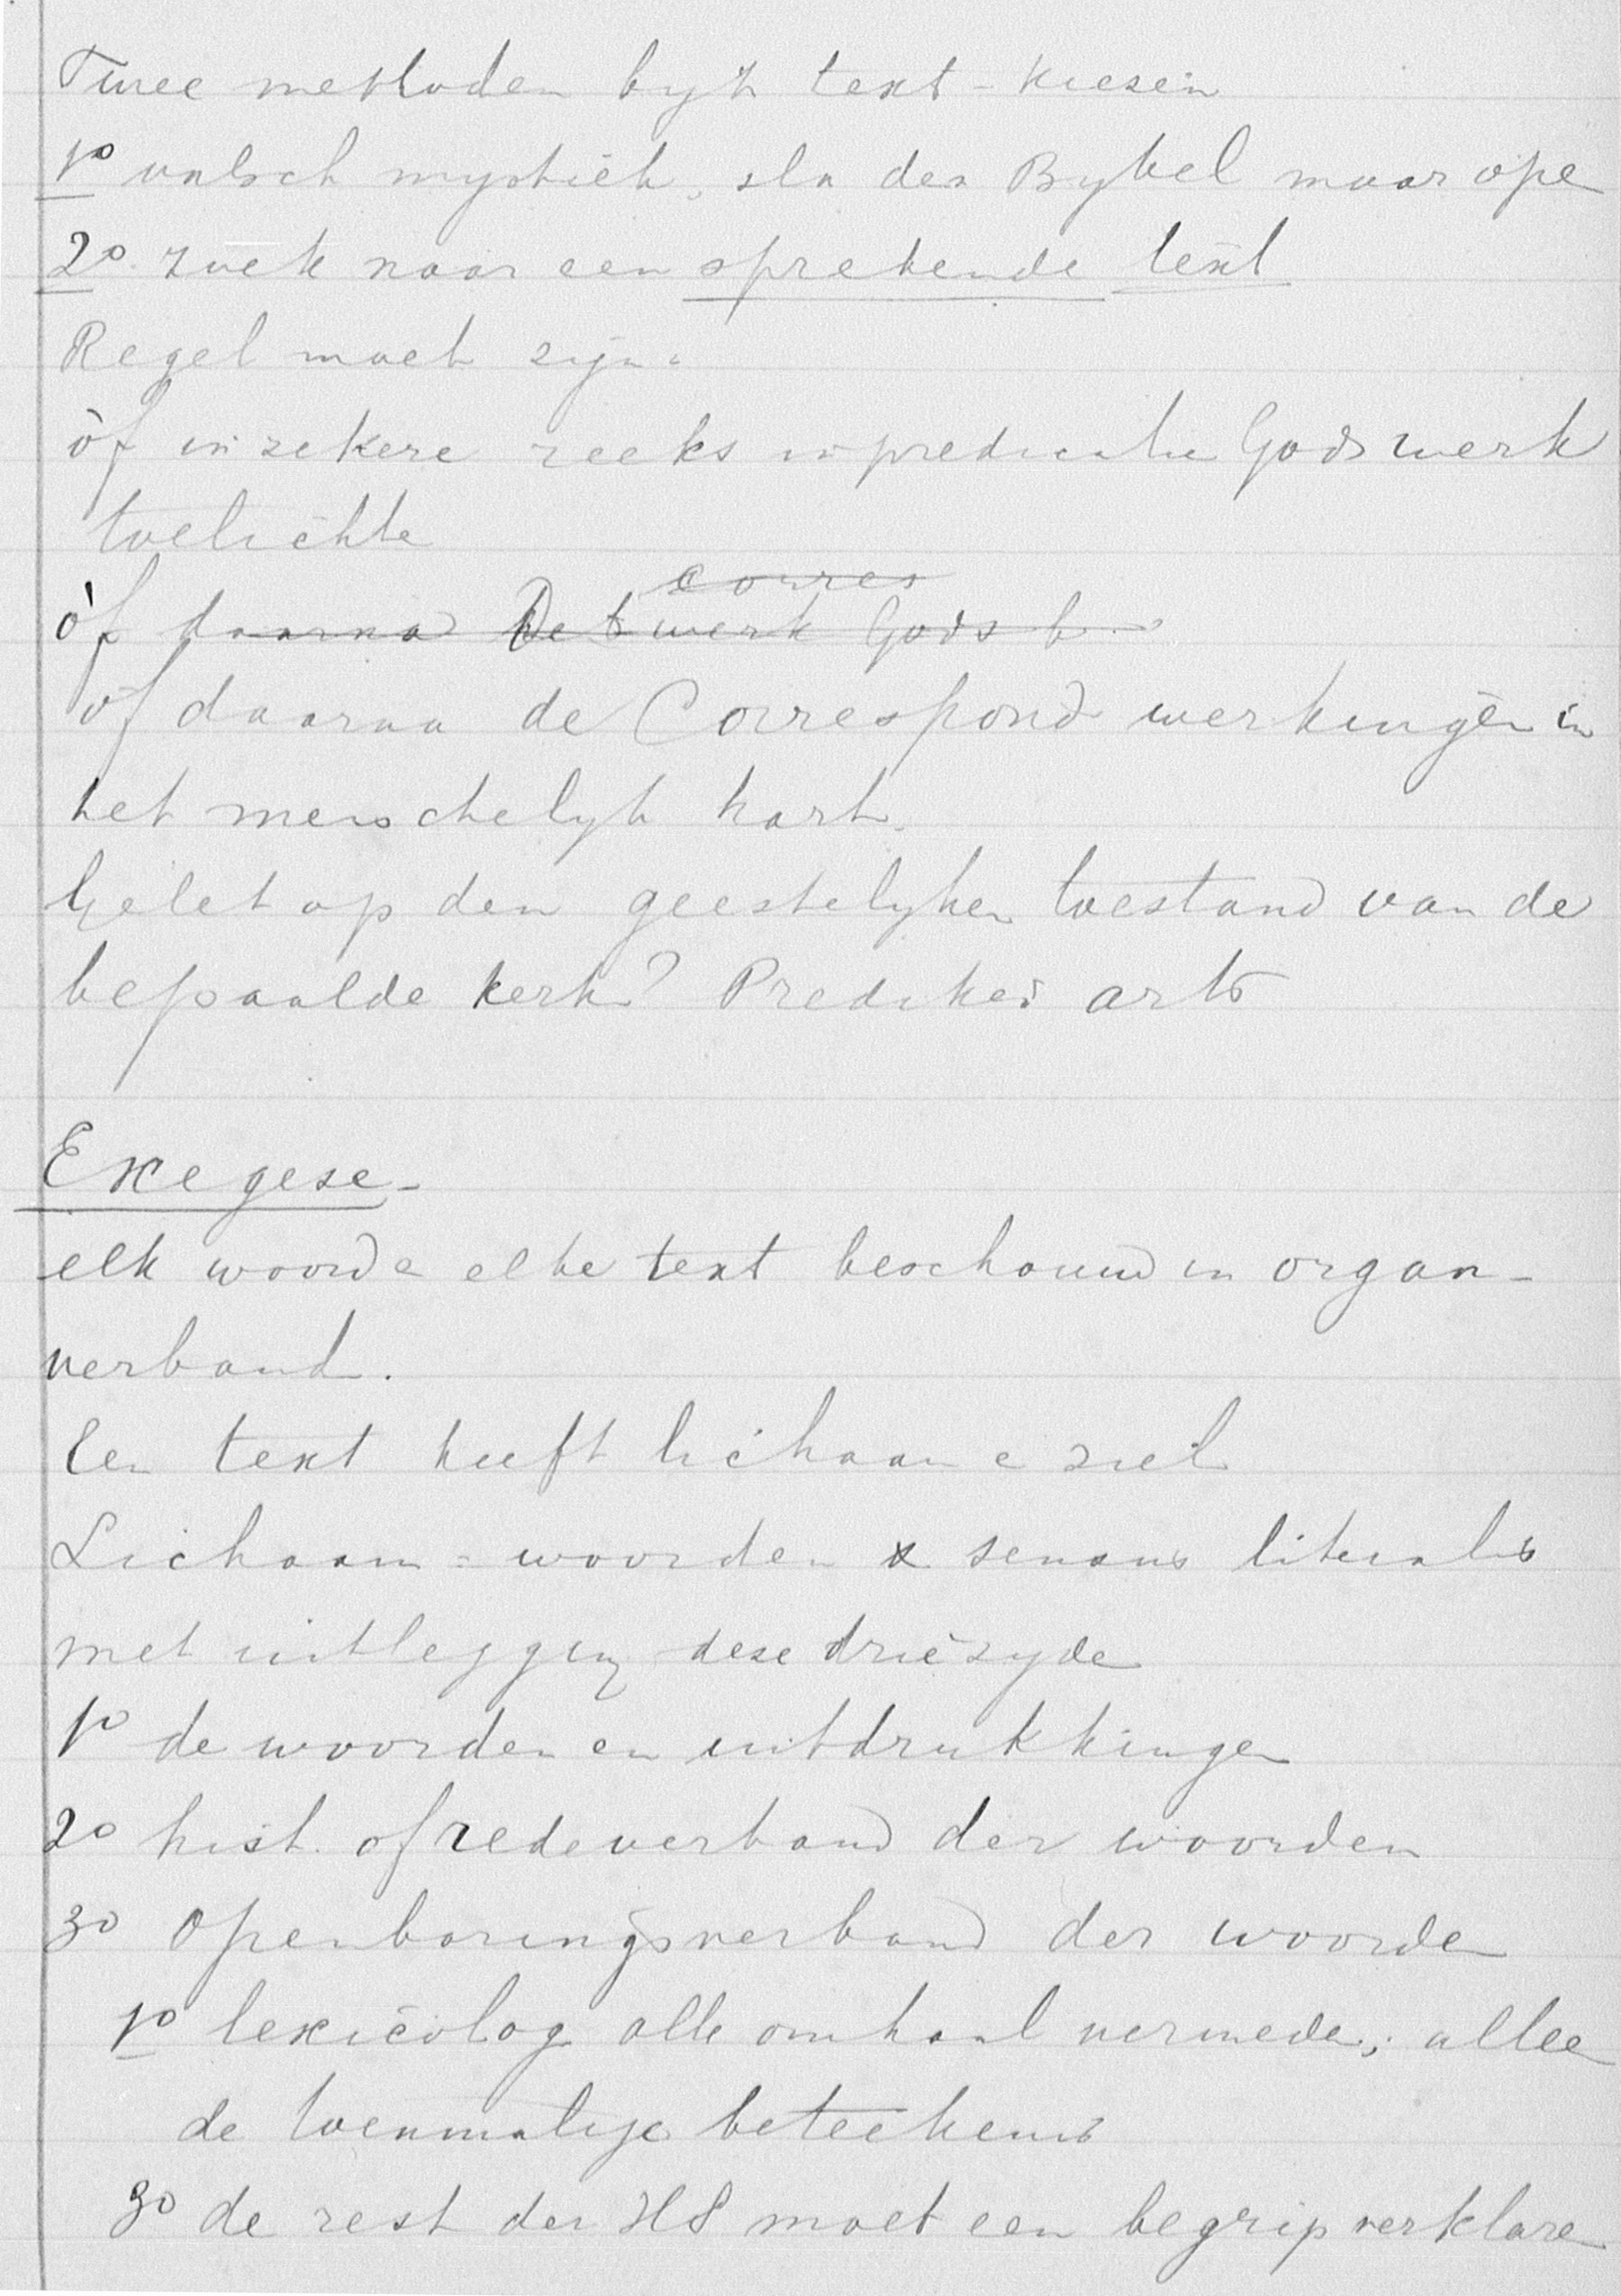 Twee methoden by't text-kiesen
1º valsch mystiek, sla den Bybel maar ope
2º zoek naar een sprekende text
Regel moet zijn:
òf in zekere reeks in predicatie Gods werk
toelichte
corres
òf daarna Het werk Gods b
òf daarna de Correspond werkingen in
het menschelyk hart.
Gelet op den geestelyken toestand van de
bepaalde kerk? Prediker arts
Exegese-
elk woord e elke text beschouwd in organ-
verband.
Een text heeft lichaam e ziel
Lichaam = woorden & sensus literalis
met uitlegging deze drie zyde
1º de woorden en uitdrukkingen
2º hist. of redeverband der woorden
3º Openbaringsverband der woorden
1º lexicolog alle omhaal vermeden; allee
de toenmalige beteekenis
3º de rest der HS moet een begrip verklare